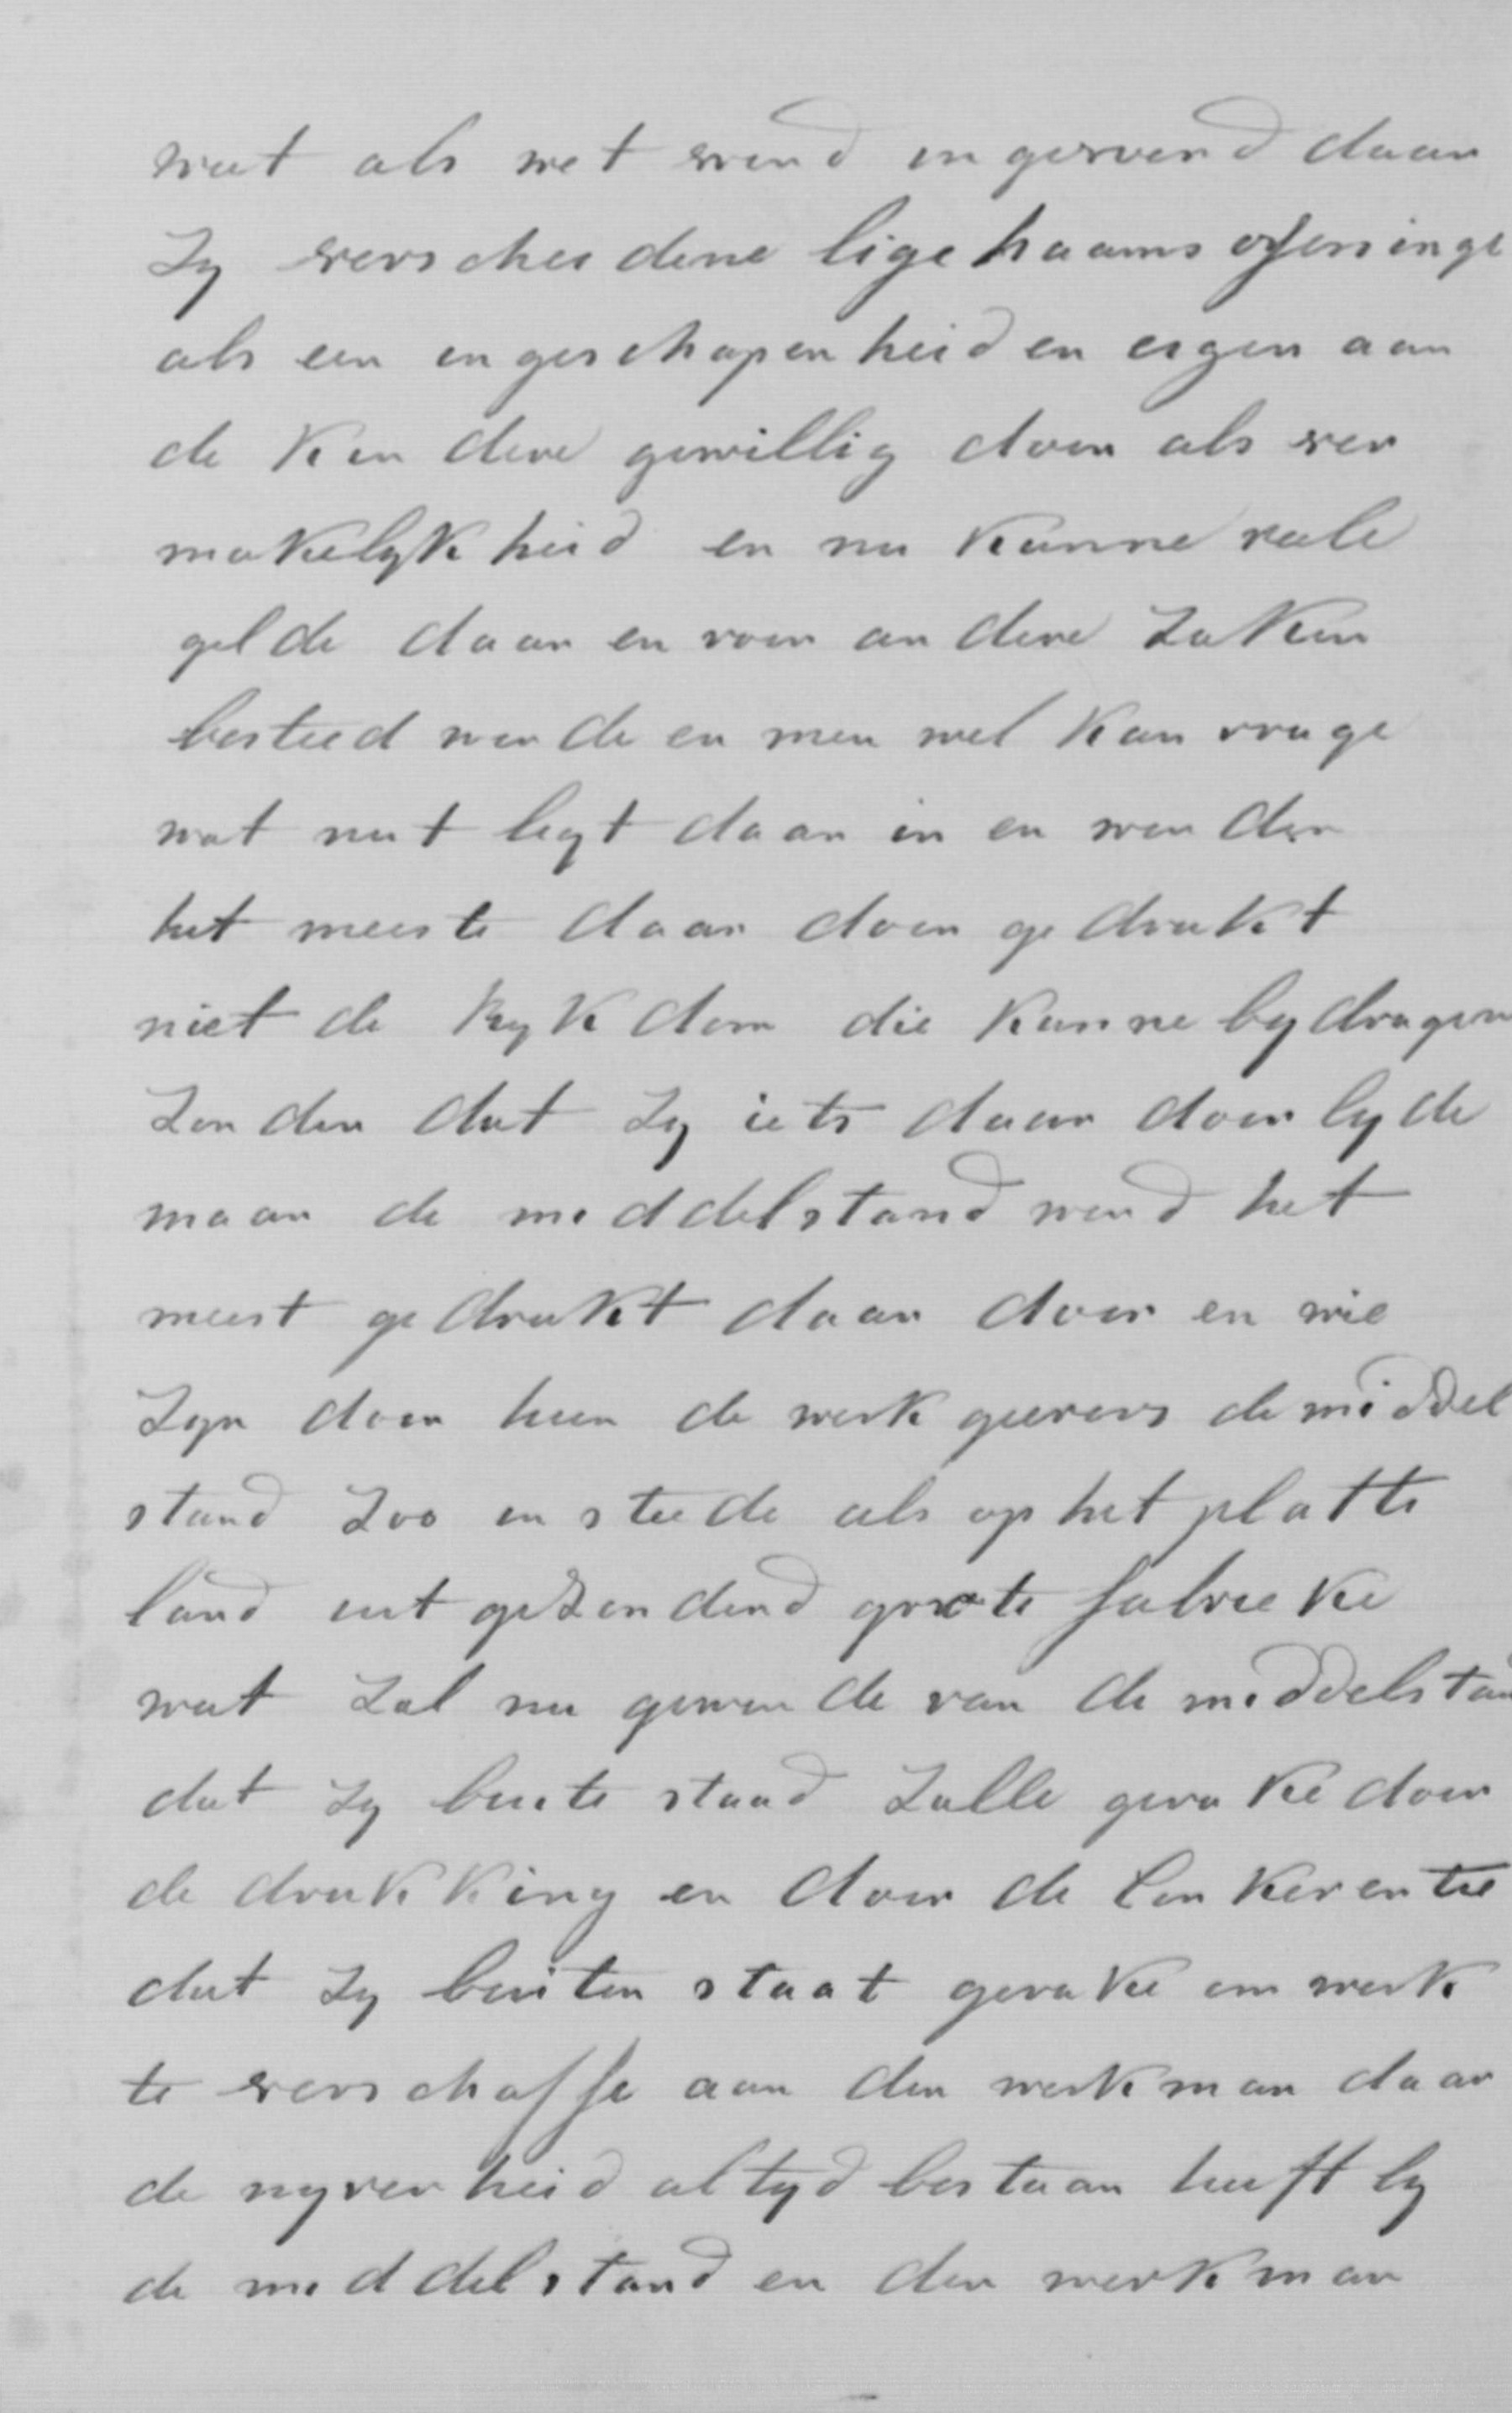 wat als wet werd ingevoerd daar
Zy verscheidene ligehaams ofeninge
als een ingeschapenheid en eigen aan
de Kindere gewillig doen als ver
makelykheid en nu Kunne veele
gelde daar en voor andere Zaken
besteed worde en men wel Kan vrage
wat nut legt daar in en worden
het meeste daar door gedrukt
niet de RykKdom die Kunne bydragen
Zonder dat Zy iets daar door lyde
maar de middelstand werd het
meest gedrukt daar door en wie
Zyn door hun de werkgeevers de middel
stand Zoo in steede als op het platte
land uit gezonderd groote fabrieke
wat Zal nu geworde van de middelstan
dat Zy buite staad Zulle gerake door
de drukking en door de Conkerentie
dat Zy buiten staat gerake om werk
te verschaffe aan den werkman daar
de nyverheid altyd bestaan heeft by
de middelstand en den werkman